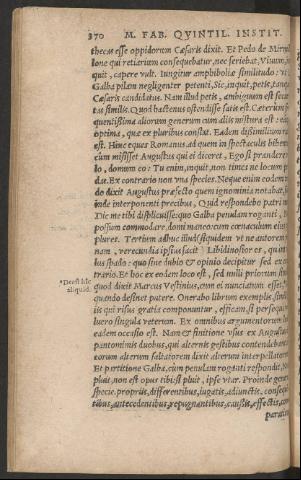 370 M. FAB. QVINTIL. INSTIT.
thecas esse oppidorum Cæsaris dixit. Et Pedo de Mirmil
lone qui retiarium consequebatur, nec feriebat, Viuum, in
quit, capere vult. Iungitur amphiboliæ similitudo: vt
Galba pilam negligenter petenti, Sic, inquit, petis, tanquam
Cæsaris candidatus. Nam illud petis, ambiguum est: secu
tas similis. Quod hactenus ostendisse satis est. Cæterum fre
quentissima aliorum generum cum aliis mistura est: ea
optima, quæ ex pluribus constat. Eadem dissimilium ra
est. Hinc eques Romanus, ad quem in spectaculis bibentem
cùm misisset Augustus qui ei diceret, Ego si prandere
lo, domum eo: Tu enim, inquit, non times ne locum per
das. Ex contrario non vna species. Neque enim eodem mo
do dixit Augustus præfecto quem ignominia notabat,
inde interponenti precibus, Quid respondebo patri
Dic me tibi displicuisse: quo Galba penulam roganti, Non
possum commodare, domi maneo: cum cœnaculum eius
plueret. Tertium adhuc illud (siquidem vt ne autorem
nam, verecundia ipsius facit) Libidinosior es, quàm
lus spado: quo sine dubio & opinio decipitur sed ex
trario. Et hoc ex eodem loco est, sed nulli priorum simile
quod dixit Marcus Vestinius, cum ei nunciatum esset, *
quando desinet putere. Onerabo librum exemplis, simi
lis qui risus gratia componuntur, efficiam, si persequi
luero singula veterum. Ex omnibus argumentorum locis
eadem occasio est. Nam & finitione vsus est Augustus de
pantomimis duobus, qui alternis gestibus contendebant,
eorum alterum saltatorem dixit alterum interpellatorem.
Et partitione Galba, cum penulam roganti respondit, Non
pluit, non est opus tibi: si pluit, ipse vtar. Proinde genere,
specie, propriis, differentibus, iugatis, adiunctis, consequen
tibus, antecedentibus, repugnantibus, causis, effectis, com
paratio
*Deest hîc
aliquid.